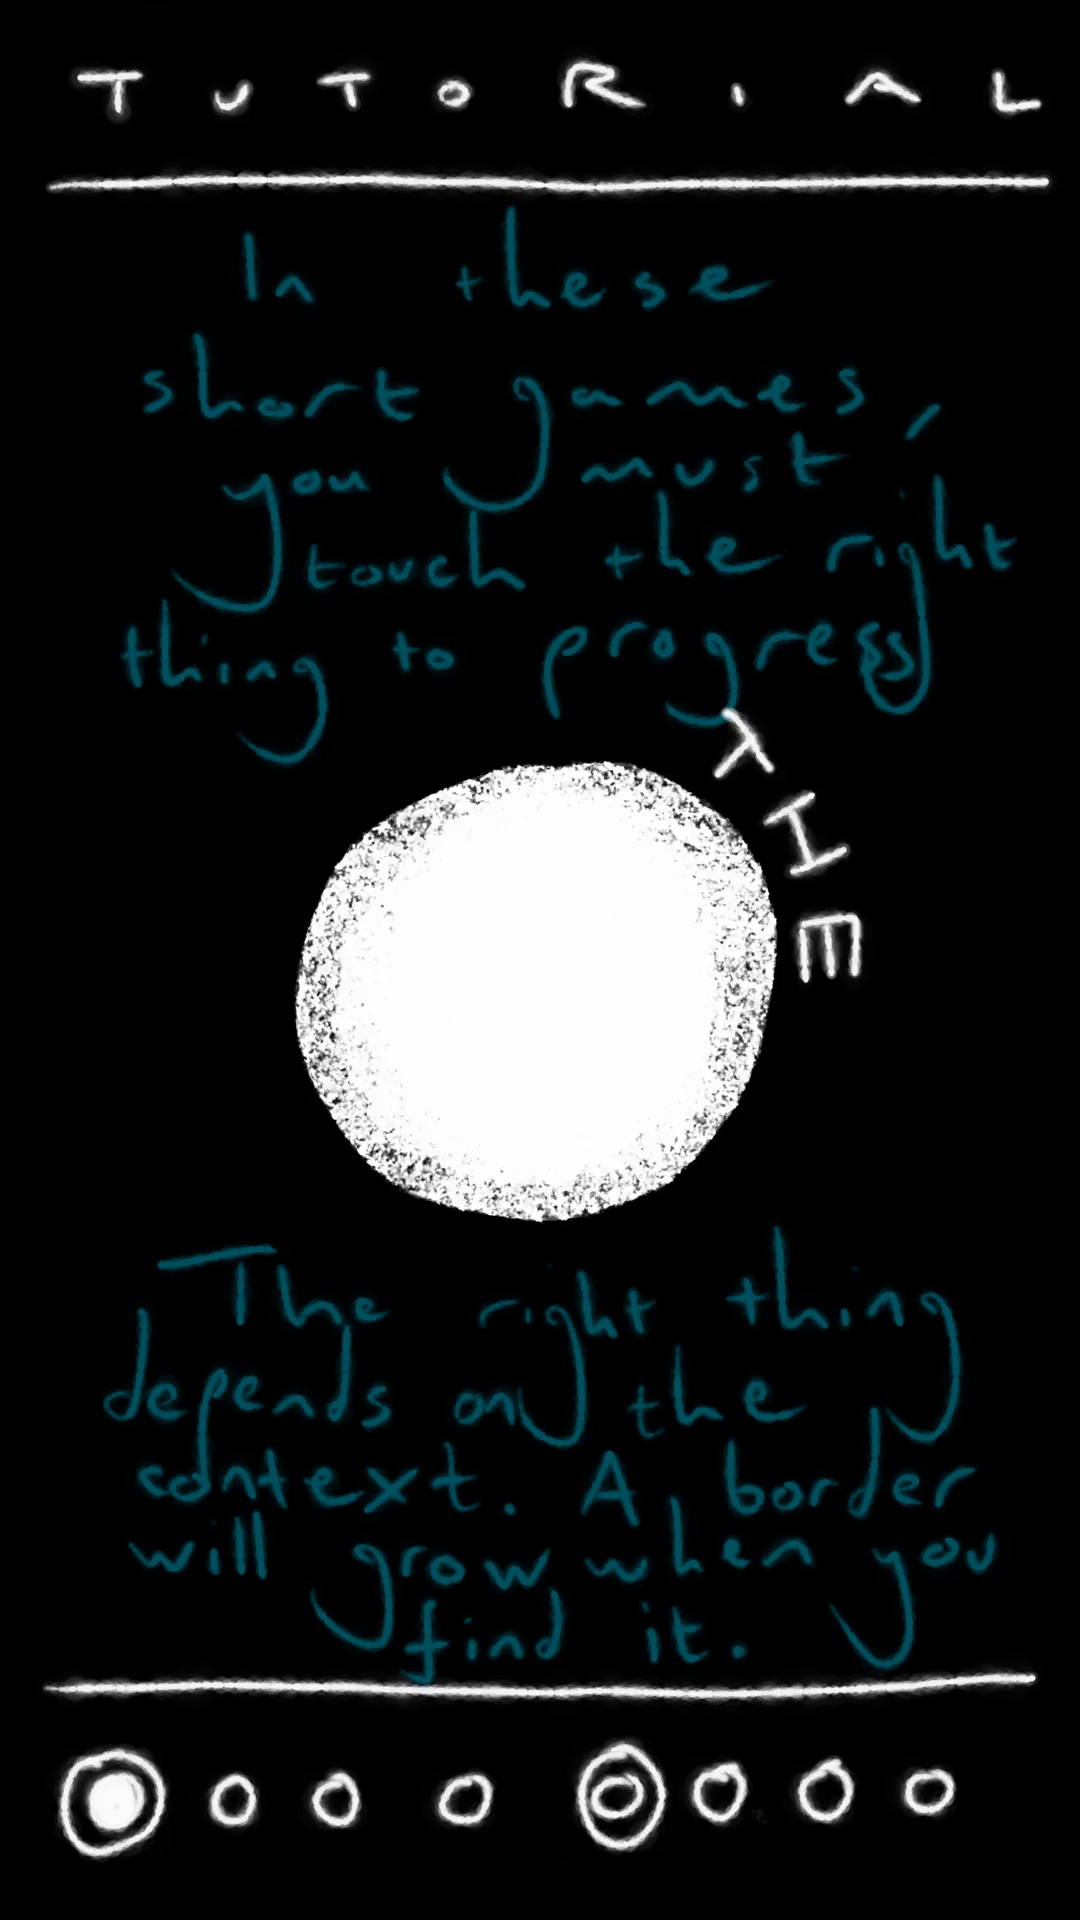 TUTORIAL
In these
short games,
you must
touch the right
thing to progress
THE
The right thing
depends on the
context. A border
will grow when you
find it.